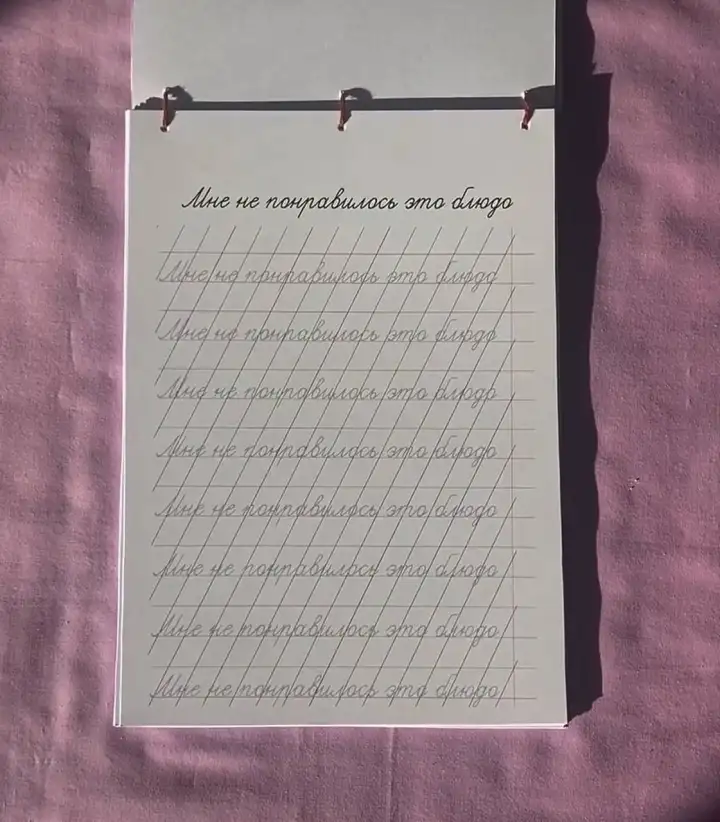 Мне не понравилось это блюдо
Мне не понравилось это блюдо
Мне не понравилось это блюдо
Мне не понравилось это блюдо
Мне не понравилось это блюдо
Мне не понравилось это блюдо
Мне не понравилось это блюдо
Мне не понравилось это блюдо
Мне не понравилось это блюдо